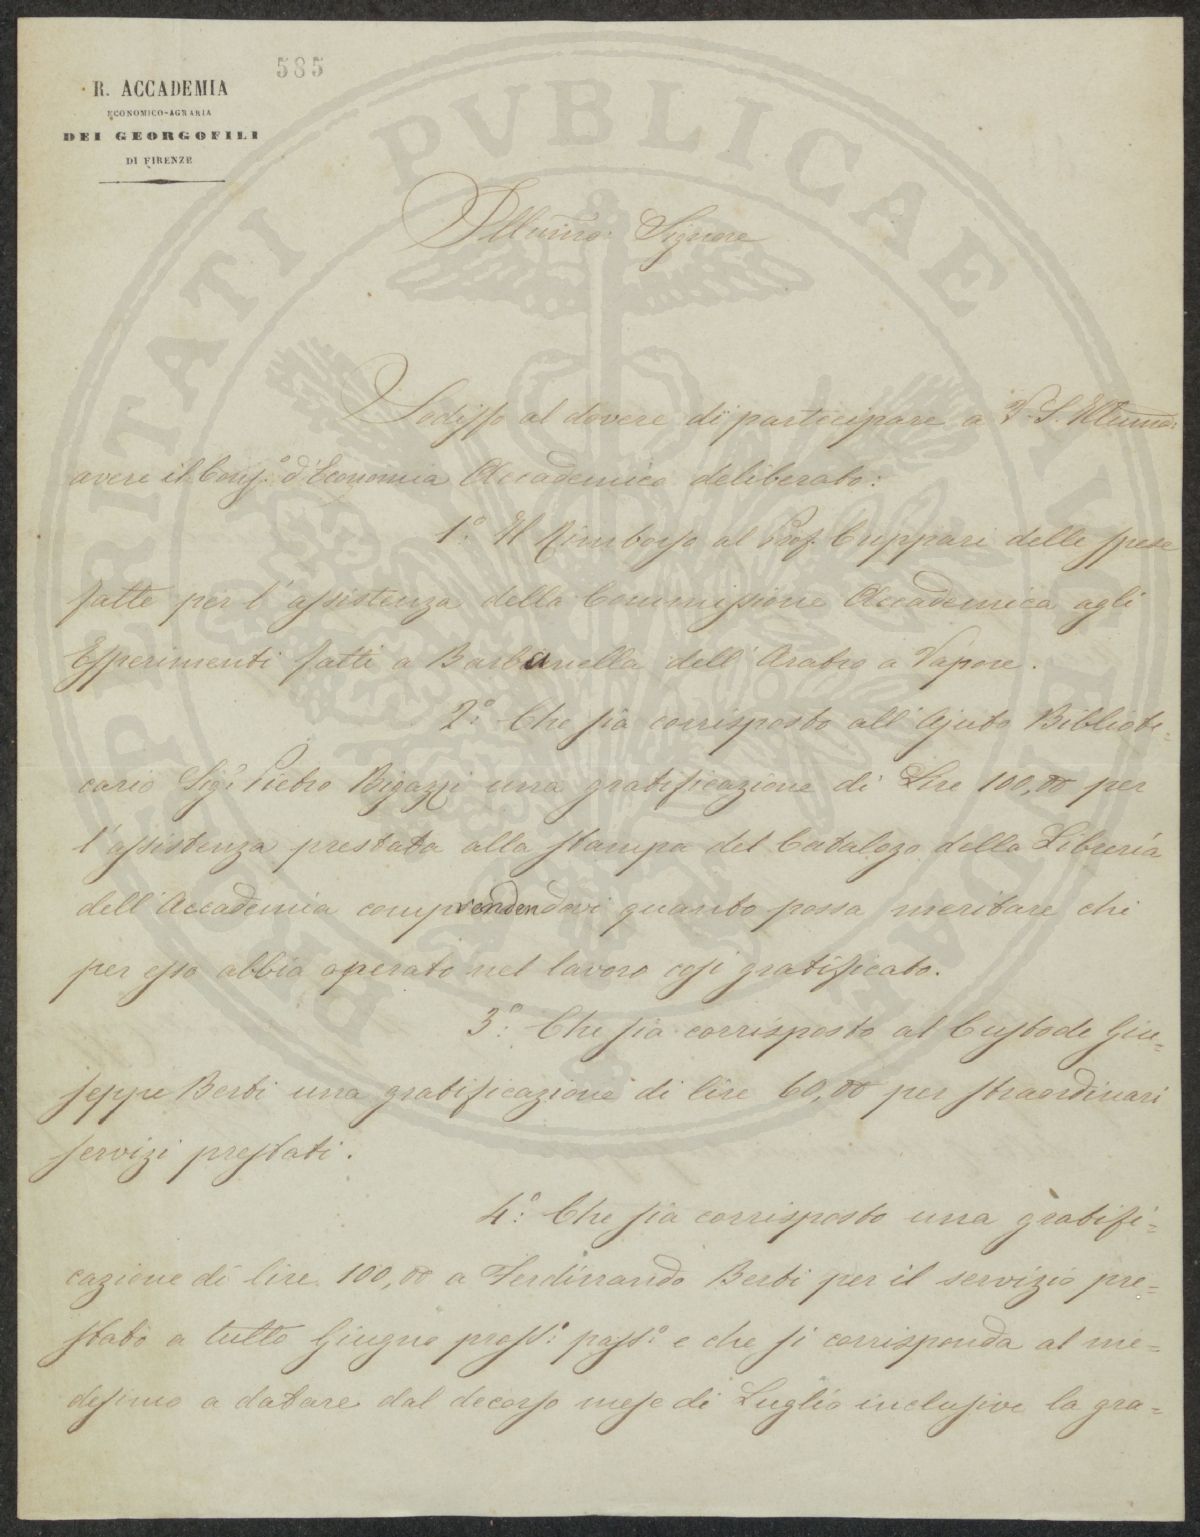 585
R. ACCADEMIA
ECONOMICO-AGRARIA
DEI GEORGOFILI
DI FIRENZE
PROSPERITATI PVBLICAE AVGENDAE
Illumo: Signore
Sodisfo al dovere di participare a V. S. Illumo:
avere il Cons.o d'Economia Accademico deliberato:
1.o Il Rimborso al Prof. Cuppari delle spese
fatte per l'assistenza della Commissione Accademica agli
Esperimenti fatti a Barbanella dell'Aratro a Vapore.
2.o Che sia corrisposto all'Ajuto Bibliote=
cario Sig.r Pietro Bigazzi una gratificazione di Lire 100,00 per
l'assistenza prestata alla stampa del Catalogo della Libreria
dell'Accademia comprendendovi quanto possa meritare chi
per esso abbia operato nel lavoro così gratificato.
3.o Che sia corrisposto al Custode Giu=
seppe Berti una gratificazione di lire 60,00 per straordinari
servizi prestati.
4.o Che sia corrisposto una gratifi=
cazione di lire 100,00 a Ferdinando Berti per il servizio pre=
stato a tutto Giugno pross.o pass.o e che si corrisponda al me=
desimo a datare dal decorso mese di Luglio inclusive la gra=